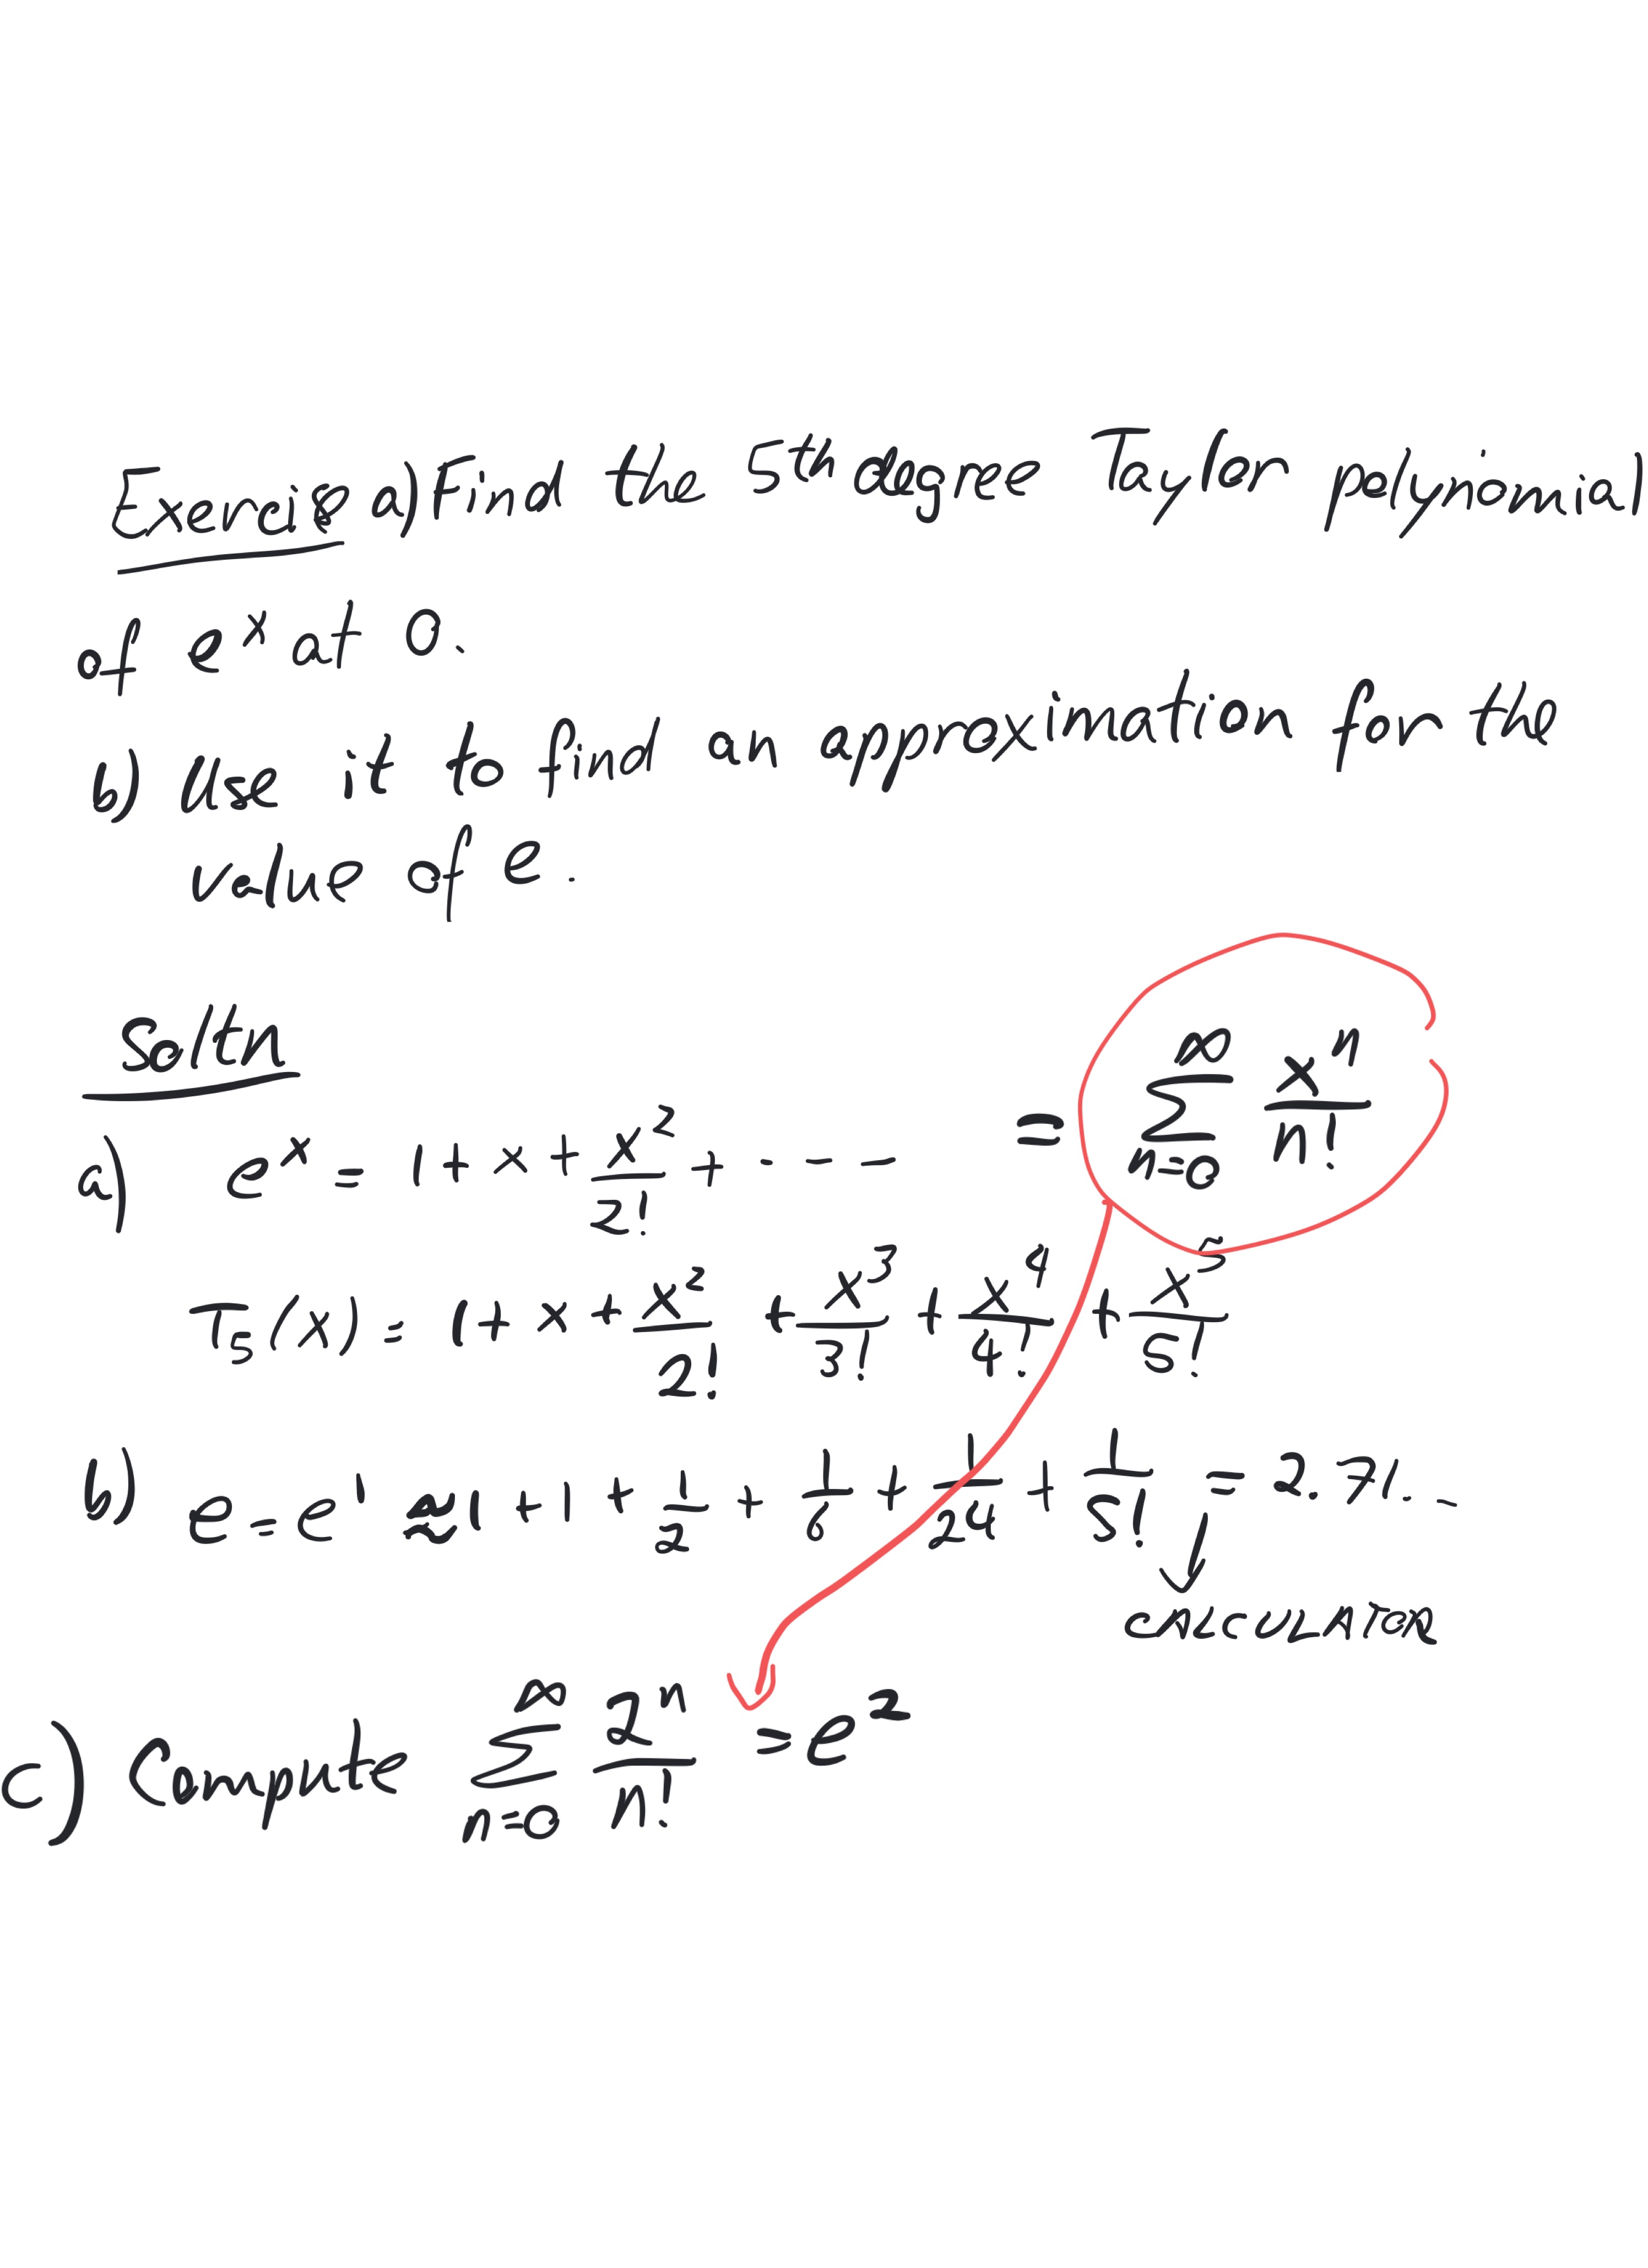 Exercise a) Find the 5th degree Taylor polynomial
of e^x at 0.
b) Use it to find an approximation for the
value of e.
Soltn
a) e^x = 1 + x + x^2/2! + - - - = ∑_{n=0}^{∞} x^n/n!
T_5(x) = 1 + x + x^2/2! + x^3/3! + x^4/4! + x^5/5!
b) e = e^1 ≈ 1 + 1 + 1/2 + 1/6 + 1/24 + 1/5! = 2.71...
CALCULATOR
c) Compute ∑_{n=0}^{∞} 2^n/n! = e^2